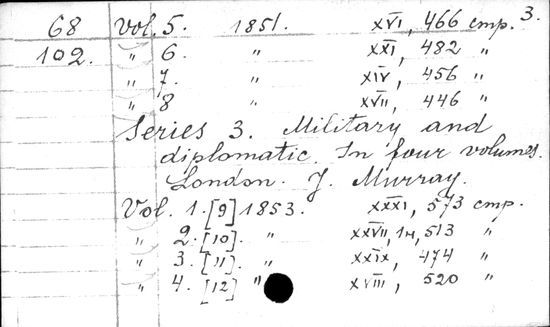 3.
68 Vol. 5. 1851. XVI, 466 стр.
102. " 6. " XXI, 482 "
" 7. " XIV, 456 "
" 8 " XVII, 446 "
Series 3. Military and
diplomatic. In four volumes.
London. J. Murray.
Vol. 1. [9] 1853. XXXI, 573 стр.
" 2. [10]. " XXVII, 1н, 513 "
" 3. [11]. " XXIX, 474 "
" 4. [12] " XVIII, 520 "